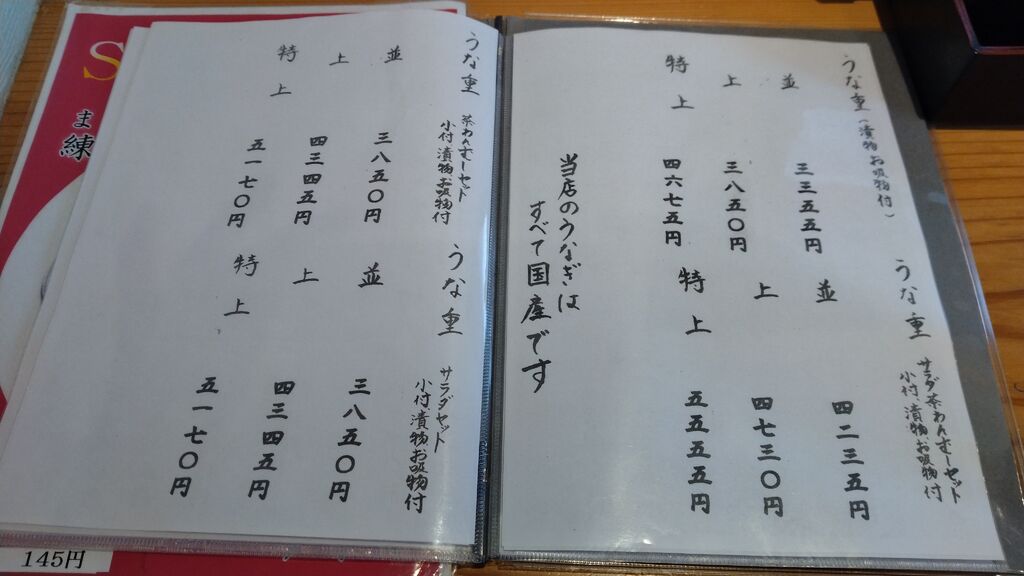 うな重（漬物お吸物付）
並　三三五五円
上　三八五〇円
特上　四六七五円
うな重　サラダ茶わんむしセット
小付漬物お吸物付
並　四二三五円
上　四七三〇円
特上　五五五五円
当店のうなぎは
すべて国産です
うな重　茶わんむしセット
小付漬物お吸物付
並　三八五〇円
上　四三四五円
特上　五一七〇円
うな重　サラダセット
小付漬物お吸物付
並　三八五〇円
上　四三四五円
特上　五一七〇円
S
ま
練
145円